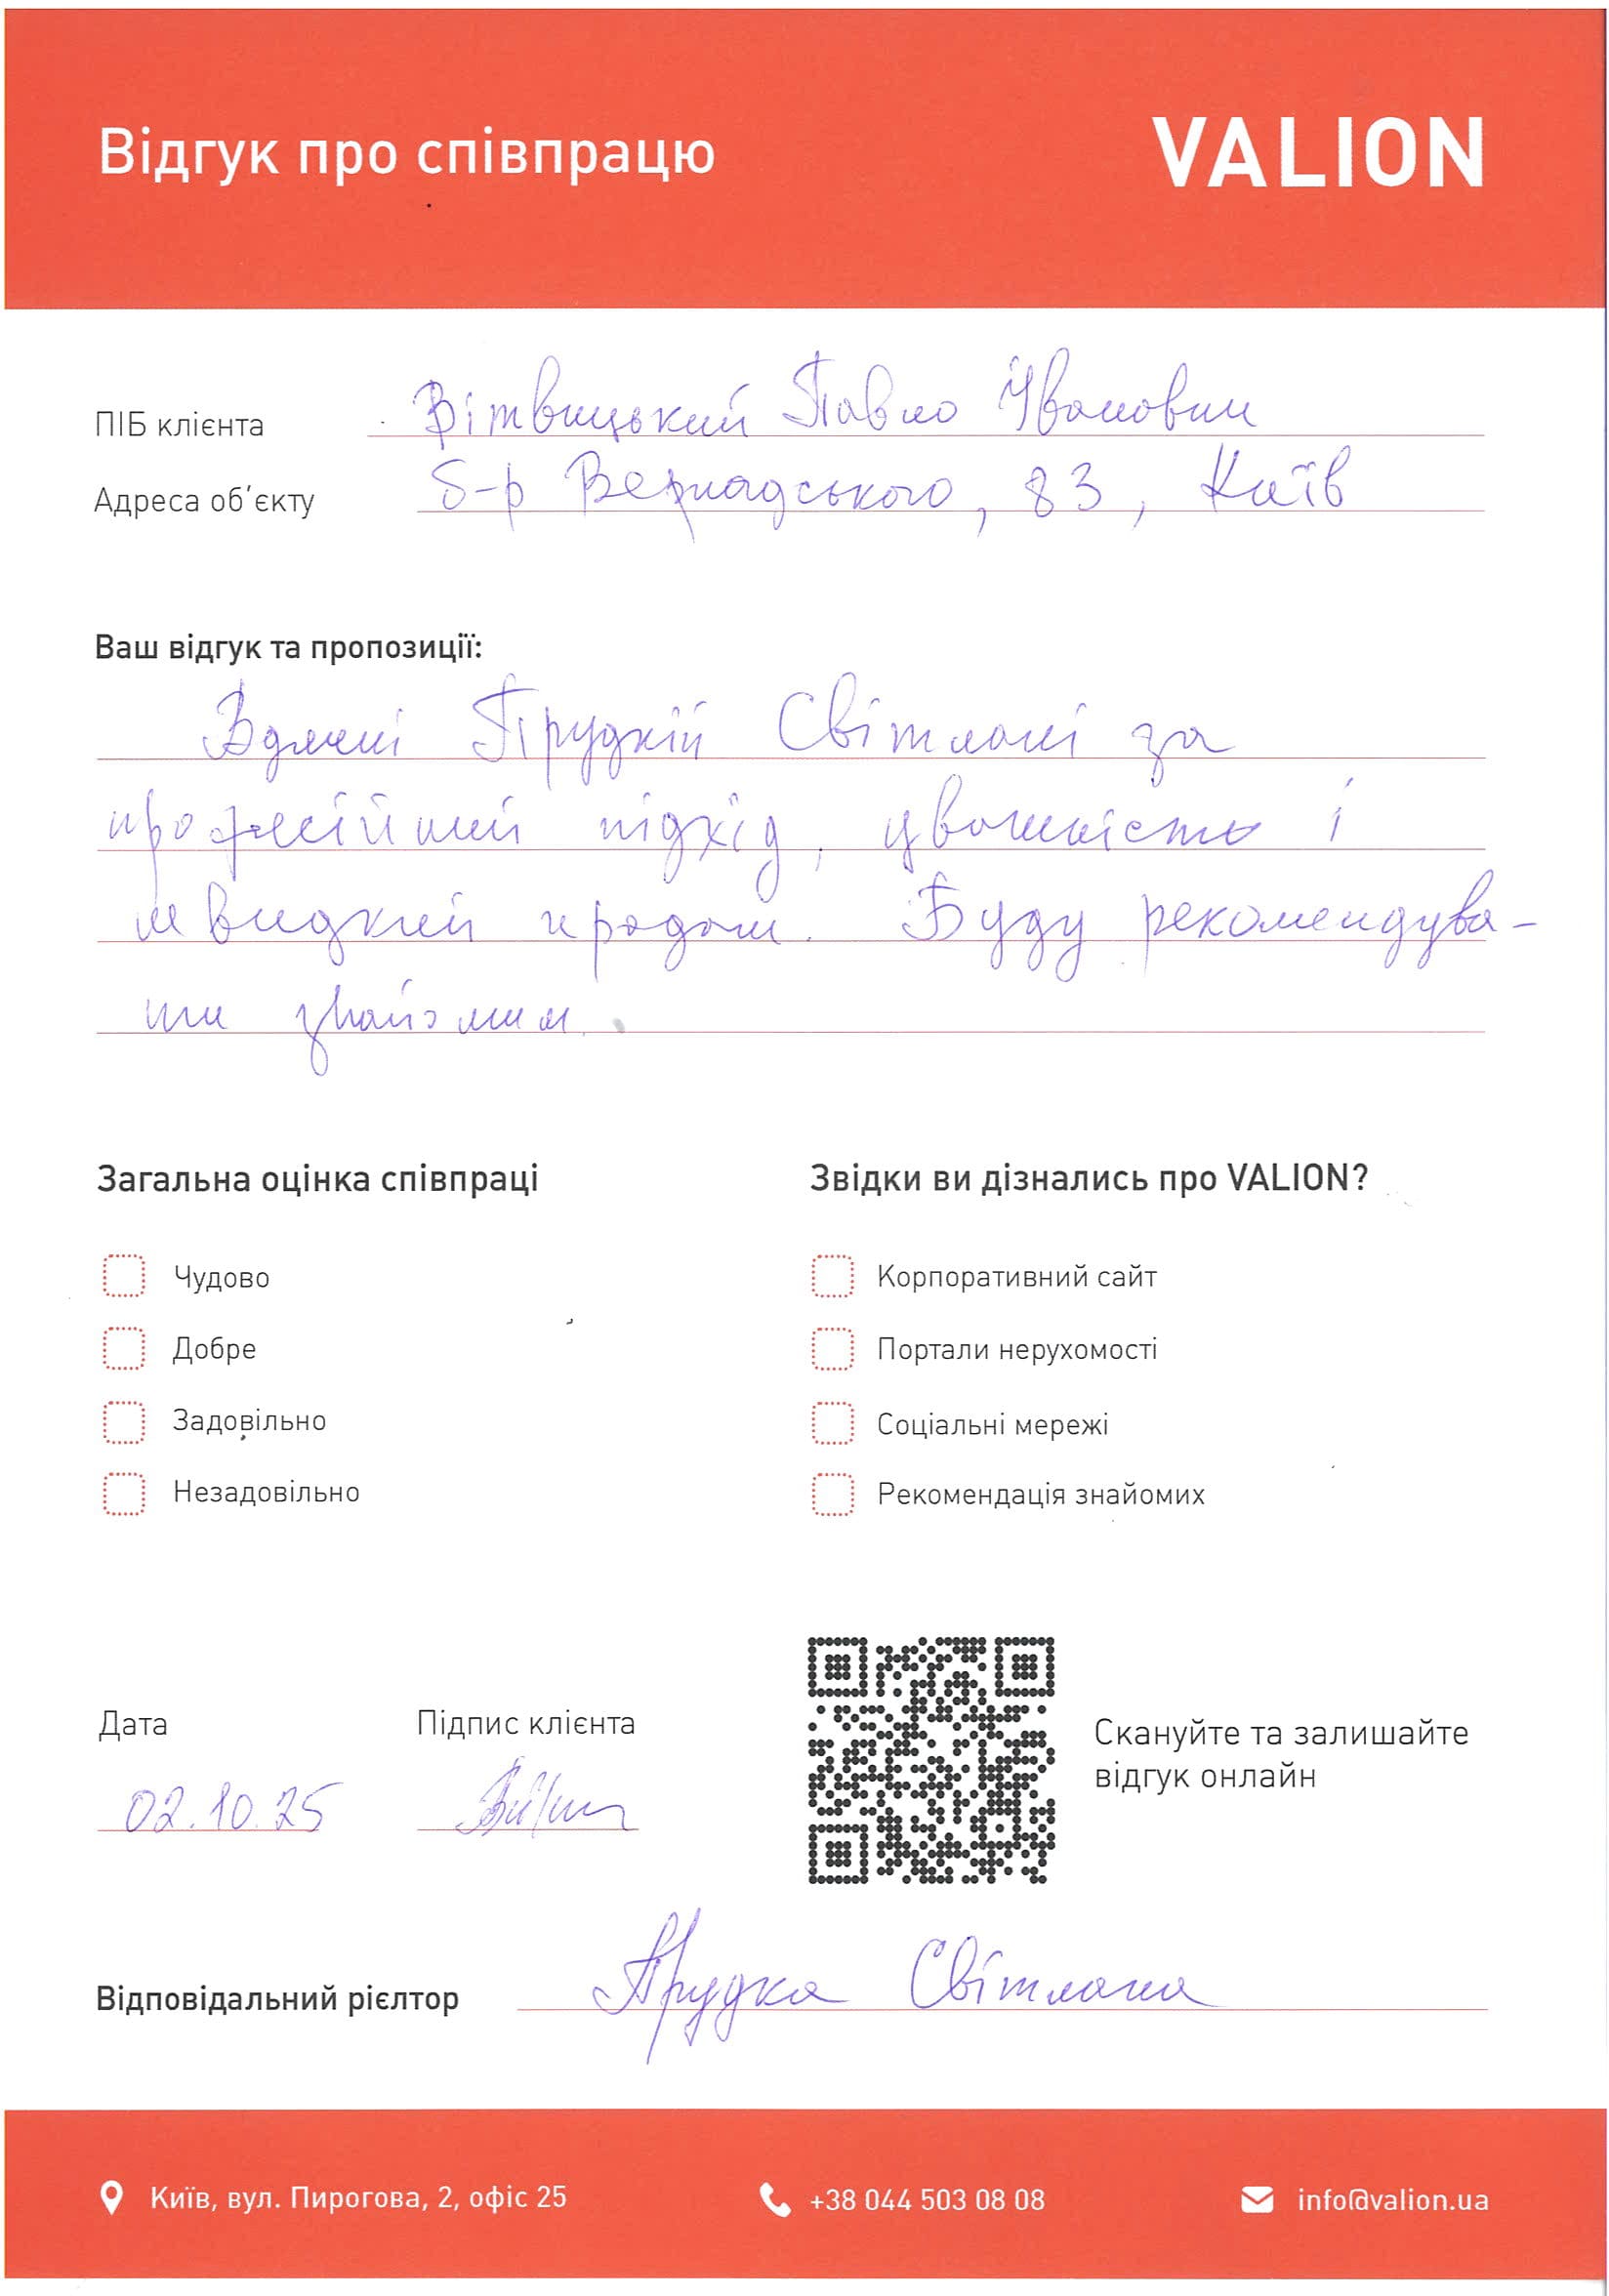 Відгук про співпрацю
VALION
ПІБ клієнта Вітвицький Павло Іванович
Адреса об'єкту б-р Вернадського, 83, Київ
Ваш відгук та пропозиції:
Вдячні Прудкій Світлані за
професійний підхід, уважність і
швидкий продаж. Буду рекомендува-
ти знайомим.
Загальна оцінка співпраці
Чудово
Добре
Задовільно
Незадовільно
Звідки ви дізнались про VALION?
Корпоративний сайт
Портали нерухомості
Соціальні мережі
Рекомендація знайомих
Дата
02.10.25
Підпис клієнта
Скануйте та залишайте
відгук онлайн
Відповідальний рієлтор Прудка Світлана
Київ, вул. Пирогова, 2, офіс 25
+38 044 503 08 08
info@valion.ua